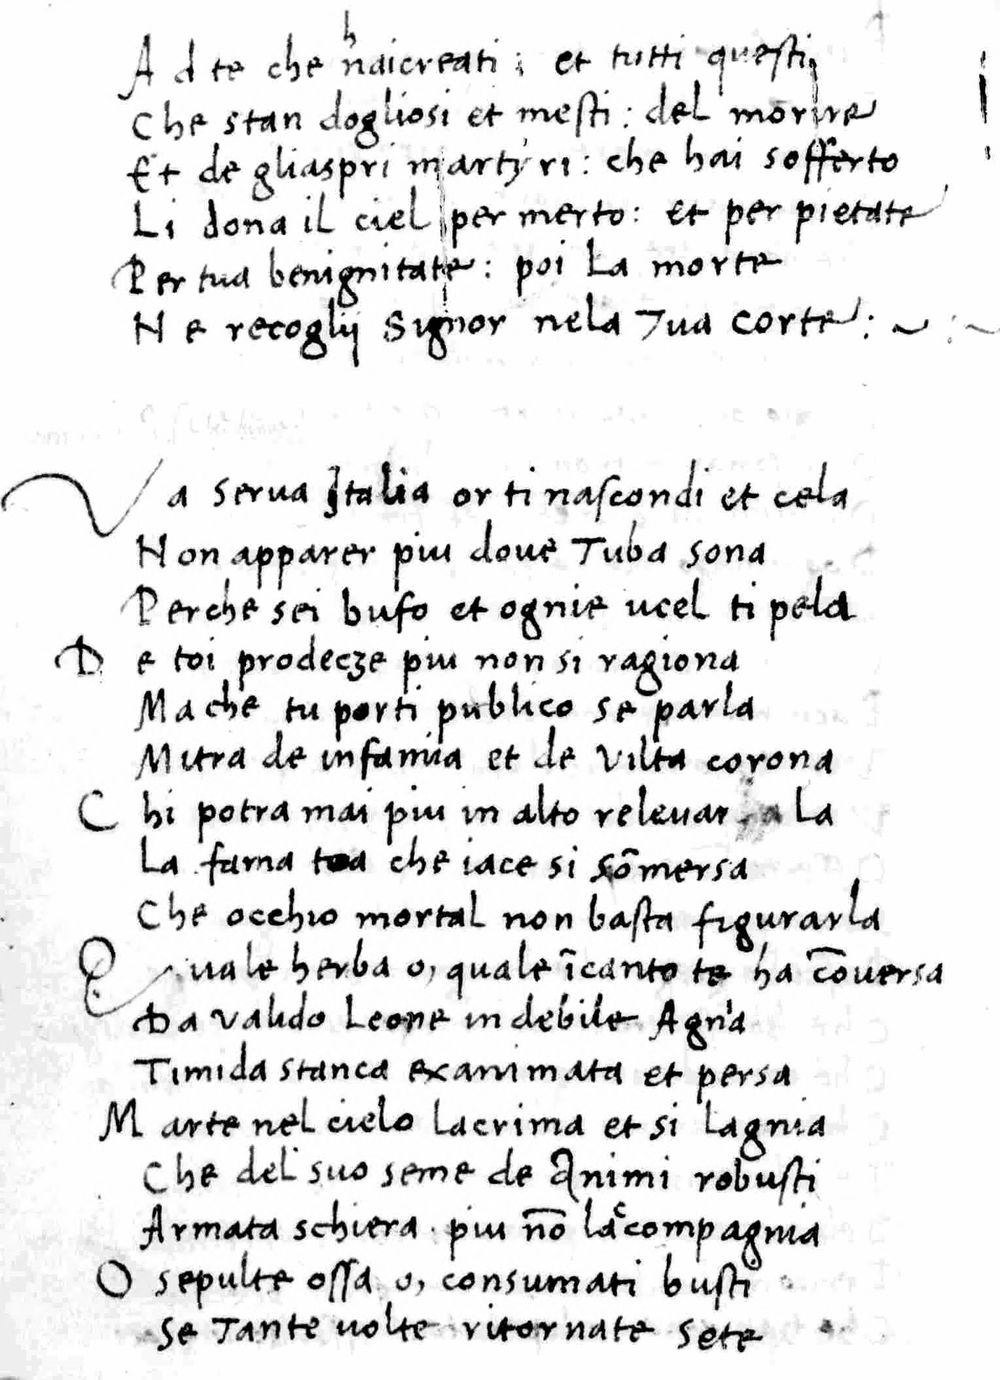 Ad te che n haicreati : et tutti questi
Che stan dogliosi et mesti : del morire
Et de gliaspri martyri : che hai sofferto
Li dona il ciel per merto : et per pietate
Per tua benignitate : poi la morte
Ne recoglij Signor nela Tua corte : ~ : ~
Va serva Italia or ti nascondi et cela
Non apparer piu dove Tuba sona
Perche sei bufo et ognie ucel ti pela
De toi prodecze piu non si ragiona
Ma che tu porti publico se parla
Mitra de infamia et de Vilta corona
Chi potra mai piu in alto relevar a la
La fama toa che iace si sõmersa
Che occhio mortal non basta figurarla
Quale herba o, quale ĩcanto te ha cõversa
Da valido Leone in debile Agna
Timida stanca exanimata et persa
Marte nel cielo lacrima et si lagnia
Che del suo seme de Animi robusti
Armata schiera piu nõ laccompagnia
O sepulte ossa o, consumati busti
Se Tante volte ritornate sete